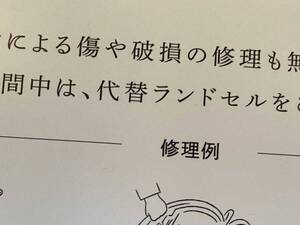 による傷や破損の修理も無
間中は、代替ランドセルを
修理例